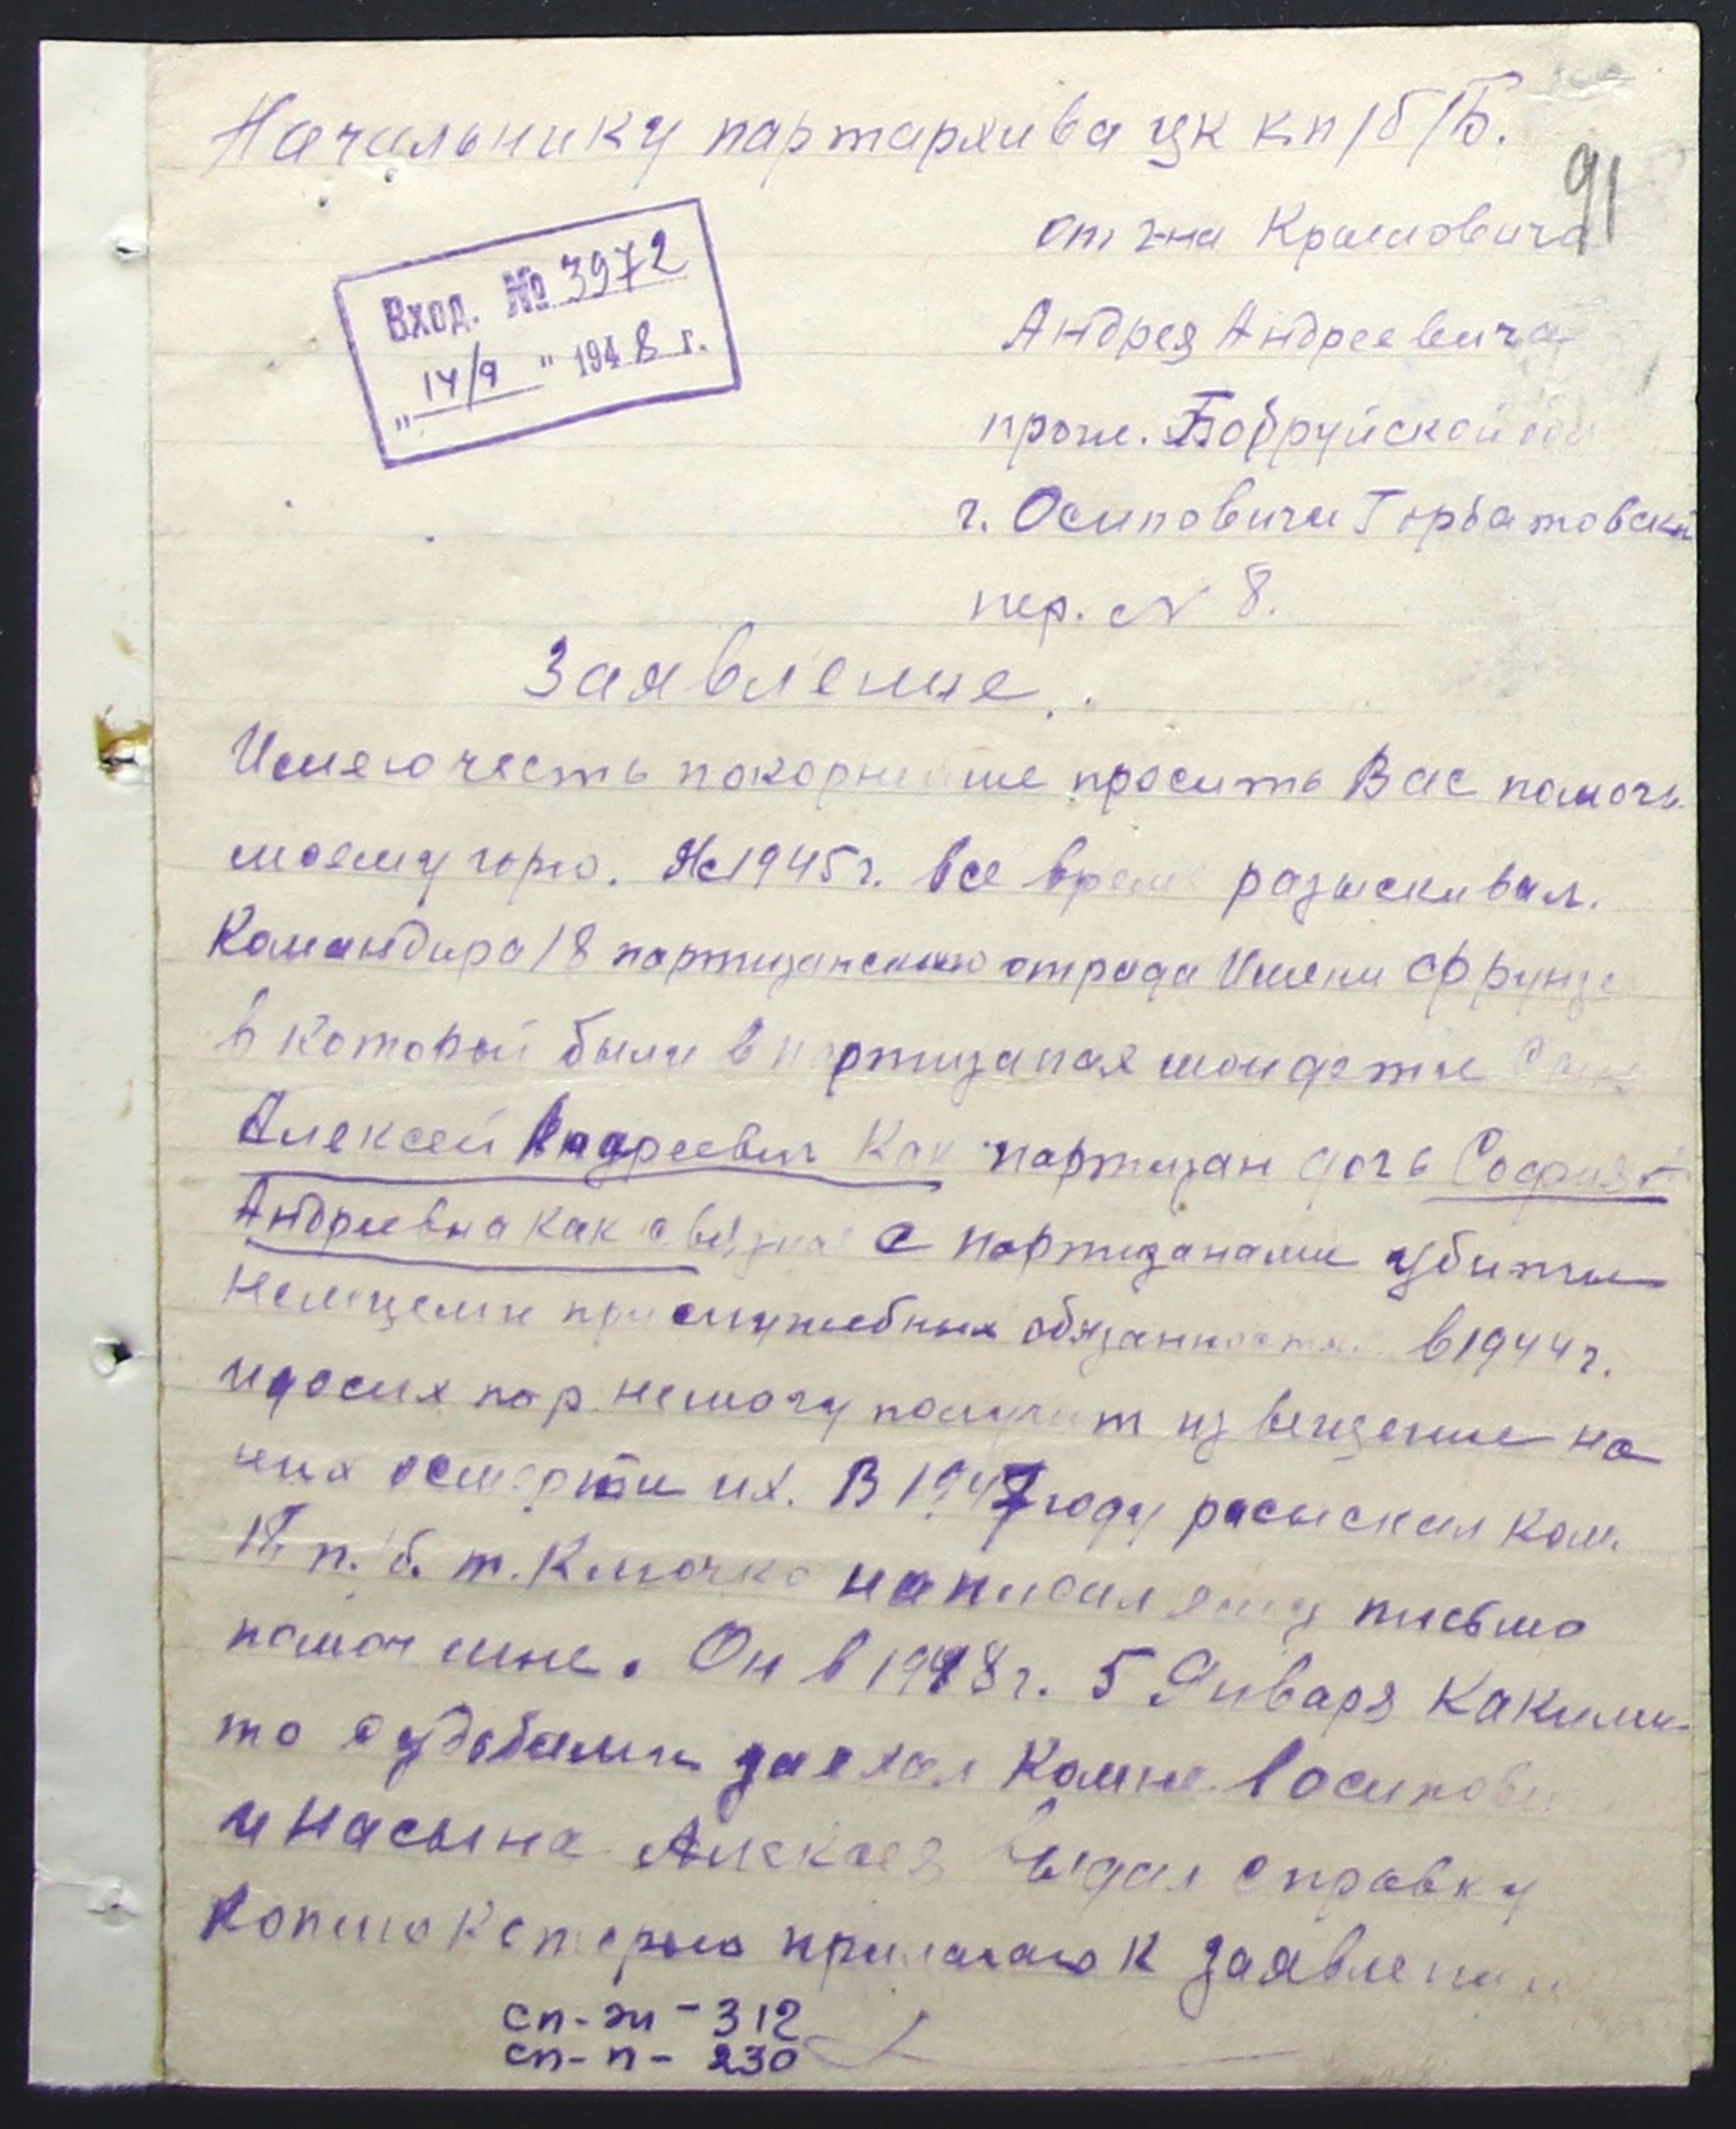 Начальнику партархива цк кп/б/Б.
91
от г-на
Андрея Андреевича
прож. Бобруйской обл
г. Осиповичи Горбатовский
пер. N 8.
Вход. № 3972
"14/9" 1948 г.
Заявление.
Имею честь покорнейше просить Вас помочь
моему горю. Я с 1945 г. все время разыскивал.
Командира 18 партизанского отряда Имени Фрунзе
в которой были в партизанах мои дети
Алексей Андреевич как партизан дочь София
Андреевна как связная с партизанами убиты
немецами при служебных обязанностях в 1944 г.
и досих пор немогу получит извещение на
них осмерти их. В 1947 году расыскал ком.
п. б. т. Клочко написал ему письмо
помоч мне. Он в 1948 г. 5 Января какими-
то судьбами заехал Комне в осипови
и насына Алексея выдал справку
копию которую прилагаю к заявлению
сп-ж-312
сп-п-230